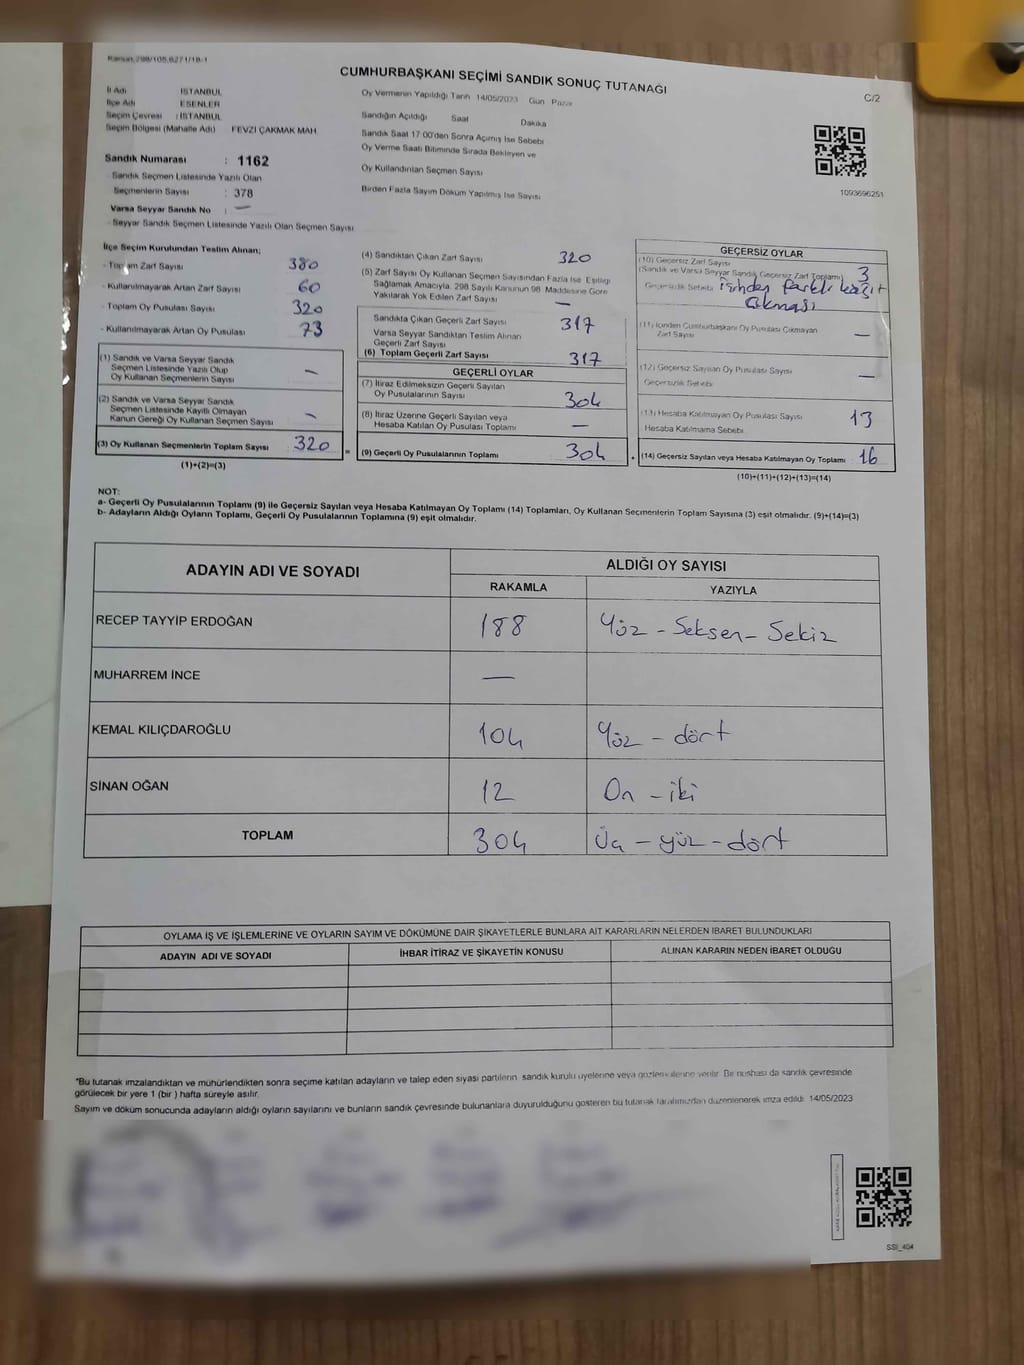 Kanun:298/105,6271/18-1
CUMHURBAŞKANI SEÇİMİ SANDIK SONUÇ TUTANAĞI
C/2
İl Adı İSTANBUL
İlçe Adı ESENLER
Seçim Çevresi : İSTANBUL
Seçim Bölgesi (Mahalle Adı) FEVZİ ÇAKMAK MAH.
Sandık Numarası : 1162
Sandık Seçmen Listesinde Yazılı Olan
Seçmenlerin Sayısı : 378
Varsa Seyyar Sandık No : —
Seyyar Sandık Seçmen Listesinde Yazılı Olan Seçmen Sayısı
Oy Vermenin Yapıldığı Tarih 14/05/2023 Gün Pazar
Sandığın Açıldığı Saat Dakika
Sandık Saat 17:00'den Sonra Açılmış İse Sebebi
Oy Verme Saati Bitiminde Sırada Bekleyen ve
Oy Kullandırılan Seçmen Sayısı
Birden Fazla Sayım Döküm Yapılmış İse Sayısı
1093696251
İlçe Seçim Kurulundan Teslim Alınan;
- Toplam Zarf Sayısı 380
- Kullanılmayarak Artan Zarf Sayısı 60
- Toplam Oy Pusulası Sayısı 320
- Kullanılmayarak Artan Oy Pusulası 73
(1) Sandık ve Varsa Seyyar Sandık
Seçmen Listesinde Yazılı Olup
Oy Kullanan Seçmenlerin Sayısı —
(2) Sandık ve Varsa Seyyar Sandık
Seçmen Listesinde Kayıtlı Olmayan
Kanun Gereği Oy Kullanan Seçmen Sayısı —
(3) Oy Kullanan Seçmenlerin Toplam Sayısı 320 =
(1)+(2)=(3)
(4) Sandıktan Çıkan Zarf Sayısı 320
(5) Zarf Sayısı Oy Kullanan Seçmen Sayısından Fazla İse Eşitliği
Sağlamak Amacıyla, 298 Sayılı Kanunun 98. Maddesine Göre
Yakılarak Yok Edilen Zarf Sayısı —
Sandıkta Çıkan Geçerli Zarf Sayısı 317
Varsa Seyyar Sandıktan Teslim Alınan
Geçerli Zarf Sayısı
(6) Toplam Geçerli Zarf Sayısı 317
GEÇERLİ OYLAR
(7) İtiraz Edilmeksizin Geçerli Sayılan
Oy Pusulalarının Sayısı 304
(8) İtiraz Üzerine Geçerli Sayılan veya
Hesaba Katılan Oy Pusulası Toplamı —
(9) Geçerli Oy Pusulalarının Toplamı 304 +
GEÇERSİZ OYLAR
(10) Geçersiz Zarf Sayısı
(Sandık ve Varsa Seyyar Sandık Geçersiz Zarf Toplamı) 3
Geçersizlik Sebebi İçinden farklı kağıt
çıkması
(11) İçinden Cumhurbaşkanı Oy Pusulası Çıkmayan
Zarf Sayısı —
(12) Geçersiz Sayılan Oy Pusulası Sayısı —
Geçersizlik Sebebi
(13) Hesaba Katılmayan Oy Pusulası Sayısı 13
Hesaba Katılmama Sebebi
(14) Geçersiz Sayılan veya Hesaba Katılmayan Oy Toplamı 16
(10)+(11)+(12)+(13)=(14)
NOT:
a- Geçerli Oy Pusulalarının Toplamı (9) ile Geçersiz Sayılan veya Hesaba Katılmayan Oy Toplamı (14) Toplamları, Oy Kullanan Seçmenlerin Toplam Sayısına (3) eşit olmalıdır. (9)+(14)=(3)
b- Adayların Aldığı Oyların Toplamı, Geçerli Oy Pusulalarının Toplamına (9) eşit olmalıdır.
ADAYIN ADI VE SOYADI ALDIĞI OY SAYISI
RAKAMLA YAZIYLA
RECEP TAYYİP ERDOĞAN 188 Yüz - Seksen - Sekiz
MUHARREM İNCE —
KEMAL KILIÇDAROĞLU 104 Yüz - dört
SİNAN OĞAN 12 On - iki
TOPLAM 304 Üç - yüz - dört
OYLAMA İŞ VE İŞLEMLERİNE VE OYLARIN SAYIM VE DÖKÜMÜNE DAİR ŞİKAYETLERLE BUNLARA AİT KARARLARIN NELERDEN İBARET BULUNDUKLARI
ADAYIN ADI VE SOYADI İHBAR İTİRAZ VE ŞİKAYETİN KONUSU ALINAN KARARIN NEDEN İBARET OLDUĞU
*Bu tutanak imzalandıktan ve mühürlendikten sonra seçime katılan adayların ve talep eden siyasi partilerin sandık kurulu üyelerine veya gözlemcilerine verilir. Bir nüshası da sandık çevresinde
görülecek bir yere 1 (bir ) hafta süreyle asılır.
Sayım ve döküm sonucunda adayların aldığı oyların sayılarını ve bunların sandık çevresinde bulunanlara duyurulduğunu gösteren bu tutanak tarafımızdan düzenlenerek imza edildi. 14/05/2023
SSI_404